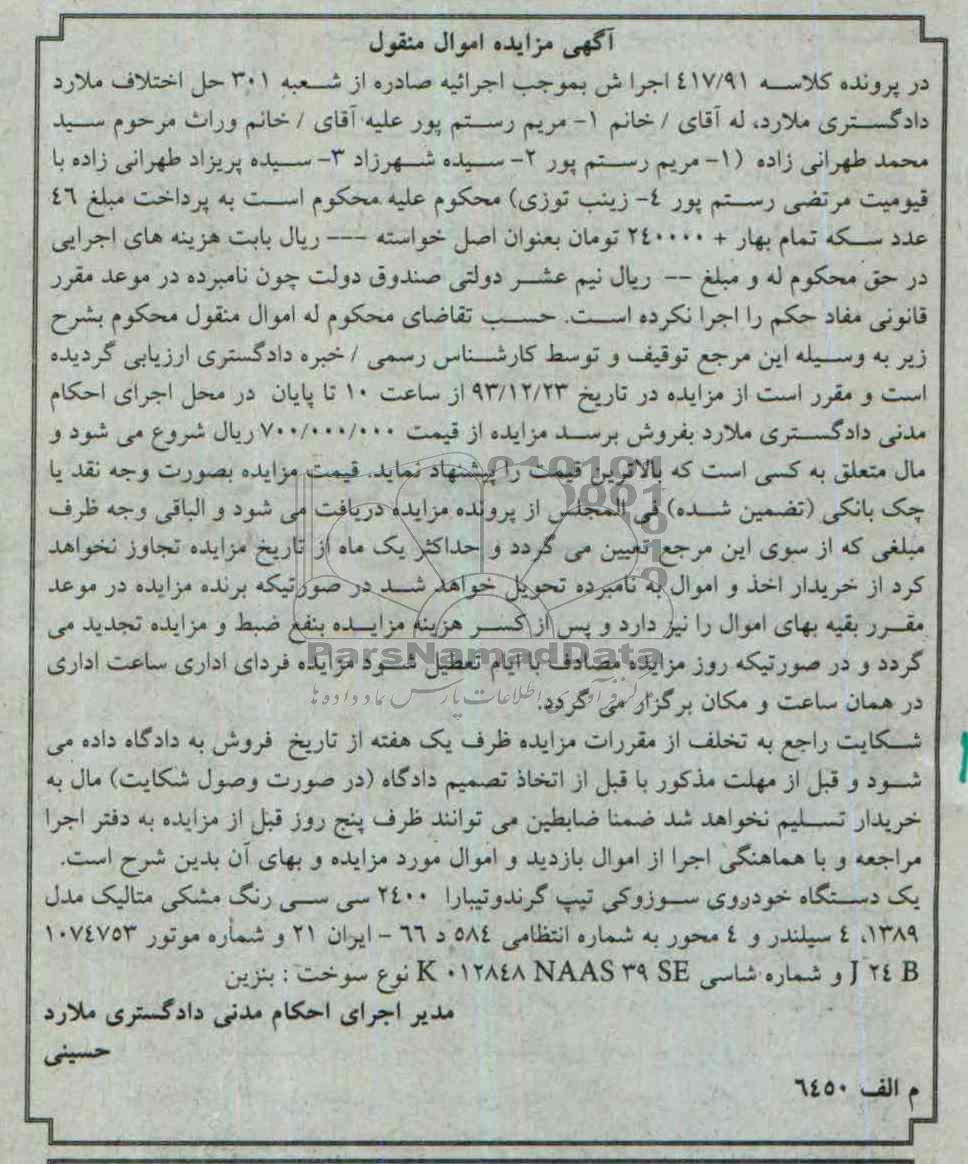 آگهی مزایده اموال منقول
در پرونده کلاسه ٤١٧/٩١ اجرا ش بموجب اجرائیه صادره از شعبه ٣٠١ حل اختلاف ملارد
دادگستری ملارد، له آقای / خانم ١- مریم رستم پور علیه آقای / خانم وراث مرحوم سید
محمد طهرانی زاده (١- مریم رستم پور ٢- سیده شهرزاد ٣- سیده پریزاد طهرانی زاده با
قیومیت مرتضی رستم پور ٤- زینب توزی) محکوم علیه محکوم است به پرداخت مبلغ ٤٦
عدد سکه تمام بهار + ٢٤٠٠٠٠ تومان بعنوان اصل خواسته --- ریال بابت هزینه های اجرایی
در حق محکوم له و مبلغ -- ریال نیم عشر دولتی صندوق دولت چون نامبرده در موعد مقرر
قانونی مفاد حکم را اجرا نکرده است. حسب تقاضای محکوم له اموال منقول محکوم بشرح
زیر به وسیله این مرجع توقیف و توسط کارشناس رسمی / خبره دادگستری ارزیابی گردیده
است و مقرر است از مزایده در تاریخ ٩٣/١٢/٢٣ از ساعت ١٠ تا پایان در محل اجرای احکام
مدنی دادگستری ملارد بفروش برسد مزایده از قیمت ٧٠٠/٠٠٠/٠٠٠ ریال شروع می شود و
مال متعلق به کسی است که بالاترین قیمت را پیشنهاد نماید. قیمت مزایده بصورت وجه نقد یا
چک بانکی (تضمین شده) فی المجلس از پرونده مزایده دریافت می شود و الباقی وجه ظرف
مبلغی که از سوی این مرجع تعیین می گردد و حداکثر یک ماه از تاریخ مزایده تجاوز نخواهد
کرد از خریدار اخذ و اموال به نامبرده تحویل خواهد شد در صورتیکه برنده مزایده در موعد
مقرر بقیه بهای اموال را نیز دارد و پس از کسر هزینه مزایده بنفع ضبط و مزایده تجدید می
گردد و در صورتیکه روز مزایده مصادف با ایام تعطیل شود مزایده فردای اداری ساعت اداری
در همان ساعت و مکان برگزار می گردد.
شکایت راجع به تخلف از مقررات مزایده ظرف یک هفته از تاریخ فروش به دادگاه داده می
شود و قبل از مهلت مذکور با قبل از اتخاذ تصمیم دادگاه (در صورت وصول شکایت) مال به
خریدار تسلیم نخواهد شد ضمنا ضابطین می توانند ظرف پنج روز قبل از مزایده به دفتر اجرا
مراجعه و با هماهنگی اجرا از اموال بازدید و اموال مورد مزایده و بهای آن بدین شرح است.
یک دستگاه خودروی سوزوکی تیپ گرندوتیبارا ٢٤٠٠ سی سی رنگ مشکی متالیک مدل
١٣٨٩، ٤ سیلندر و ٤ محور به شماره انتظامی ٥٨٤ د ٦٦ - ایران ٢١ و شماره موتور ١٠٧٤٧٥٣
J ٢٤ B و شماره شاسی K ٠١٢٨٤٨ NAAS ٣٩ SE نوع سوخت : بنزین
مدیر اجرای احکام مدنی دادگستری ملارد
حسینی
م الف ٦٤٥٠
ParsNamadData